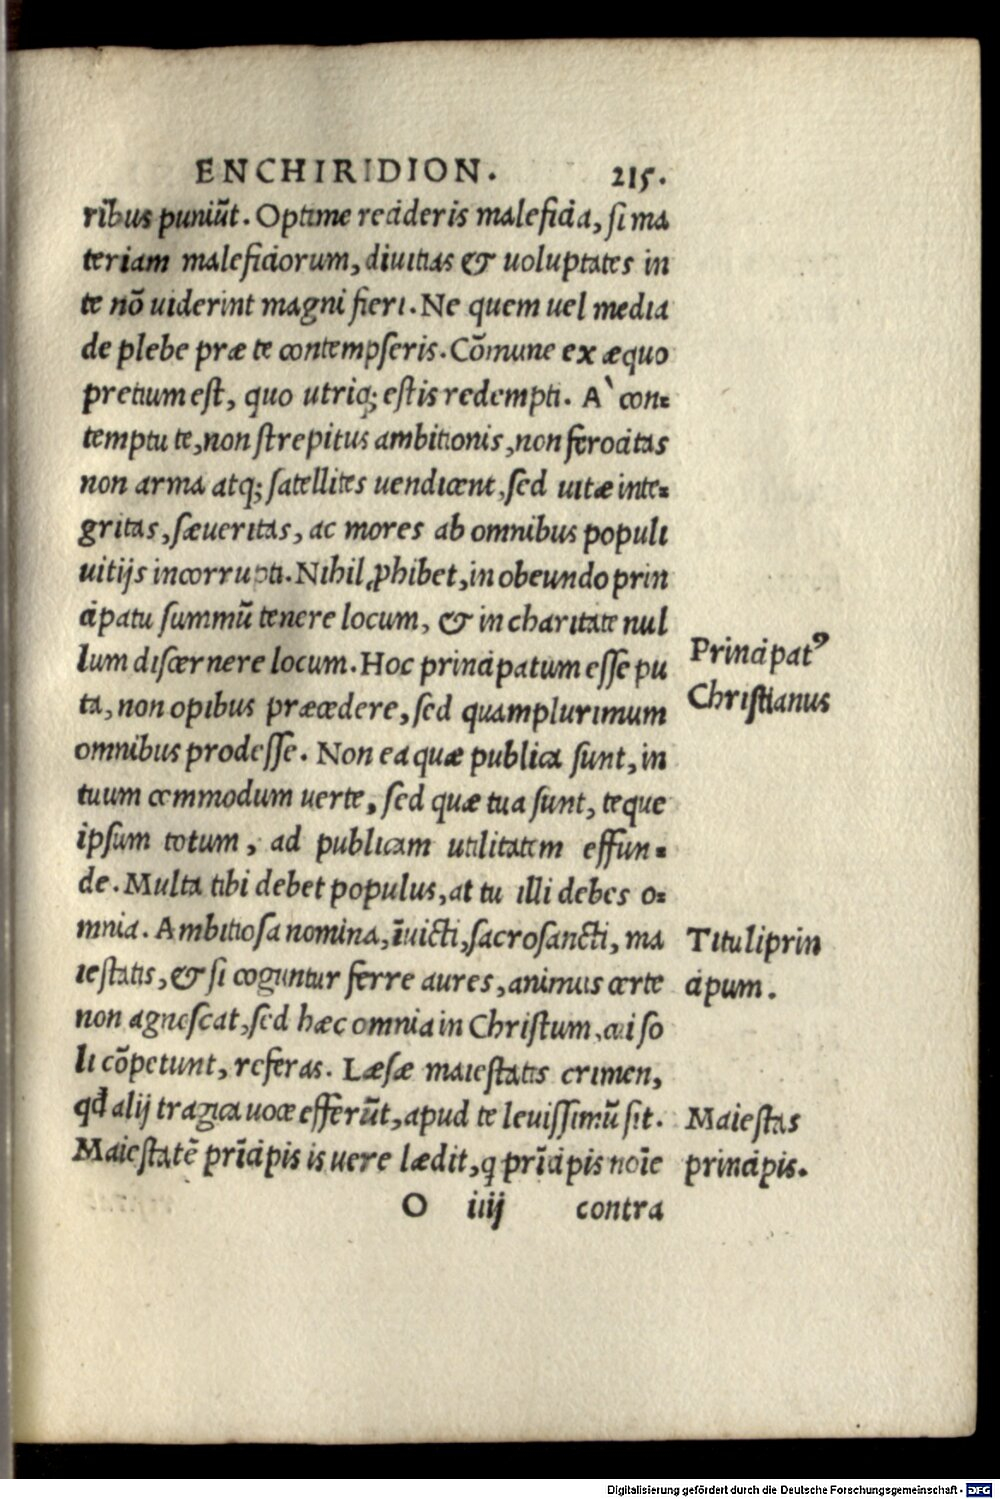 ENCHIRIDION. 215.
ribus puniũt. Optime recideris maleficia, si ma
teriam maleficiorum, diuitias & uoluptates in
te nõ uiderint magni fieri. Ne quem uel media
de plebe præ te contempseris. Cõmune ex æquo
pretium est, quo utriq; estis redempti. A` con-
temptu te, non strepitus ambitionis, non ferocitas
non arma atq; satellites uendicent, sed uitæ inte-
gritas, sæueritas, ac mores ab omnibus populi
uitijs incorrupti. Nihil ꝓhibet, in obeundo prin
cipatu summũ tenere locum, & in charitate nul
lum discernere locum. Hoc principatum esse pu
ta, non opibus præcedere, sed quamplurimum
omnibus prodesse. Non ea quæ publica sunt, in
tuum commodum uerte, sed quæ tua sunt, teque
ipsum totum, ad publicam utilitatem effun-
de. Multa tibi debet populus, at tu illi debes o-
mnia. Ambitiosa nomina, ĩuicti, sacrosancti, ma
iestatis, & si coguntur ferre aures, animus certe
non agnoscat, sed hæc omnia in Christum, cui so
li cõpetunt, referas. Læsæ maiestatis crimen,
qđ alij tragica uoce efferũt, apud te leuissimũ sit.
Maiestatẽ prĩcipis is uere lædit, q prĩcipis noĩe
O iiij contra
Principatꝰ
Christianus
Tituli prin
cipum.
Maiestas
principis.
Digitalisierung gefördert durch die Deutsche Forschungsgemeinschaft - DFG